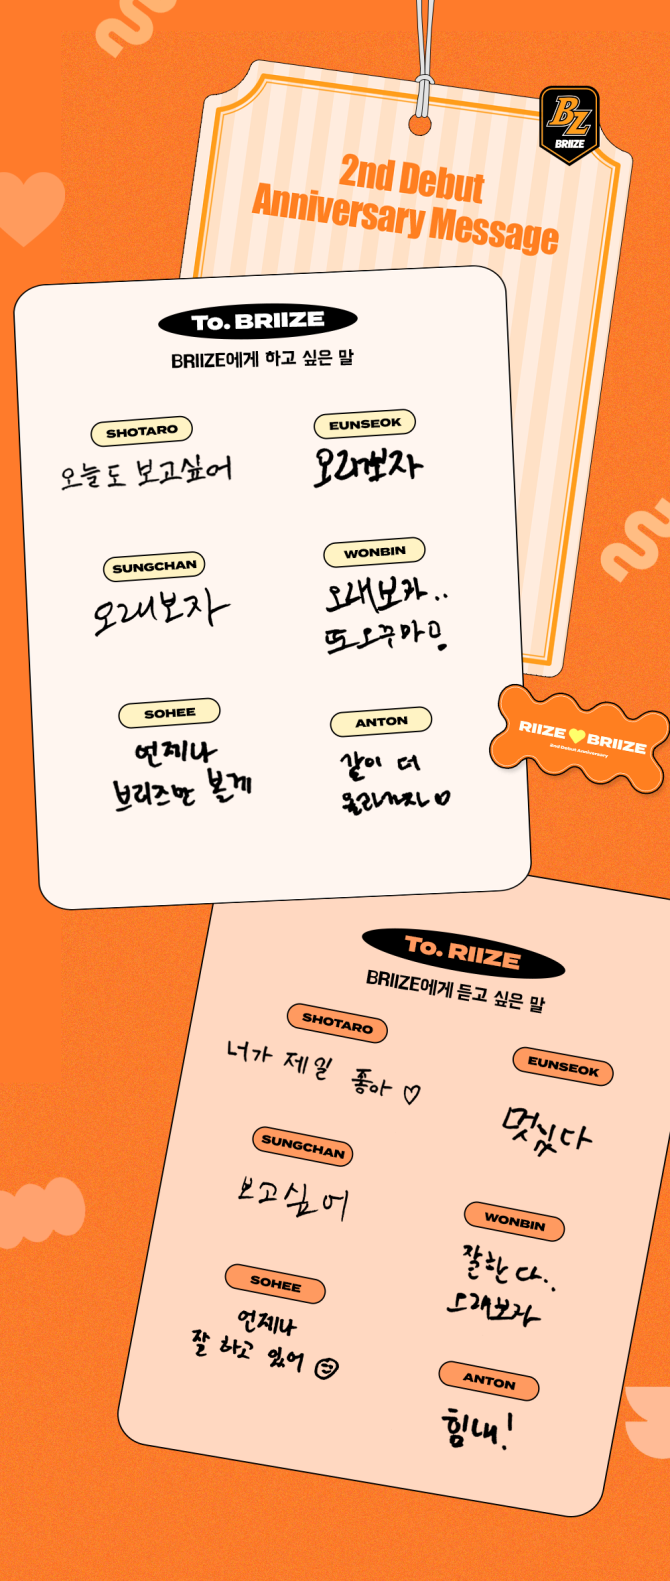 BZ
BRIIZE
2nd Debut
Anniversary Message
To. BRIIZE
BRIIZE에게 하고 싶은 말
SHOTARO
오늘도 보고싶어
EUNSEOK
오래보자
SUNGCHAN
오래보자
WONBIN
오래보자..
또오꾸마!
SOHEE
언제나
브리즈만 볼게
ANTON
같이 더
올라가자♡
RIIZE 💛 BRIIZE
2nd Debut Anniversary
To. RIIZE
BRIIZE에게 듣고 싶은 말
SHOTARO
너가 제일 좋아 ♡
EUNSEOK
멋있다
SUNGCHAN
보고싶어
WONBIN
잘한다..
오래보자
SOHEE
언제나
잘 하고 있어 ☺
ANTON
힘내!